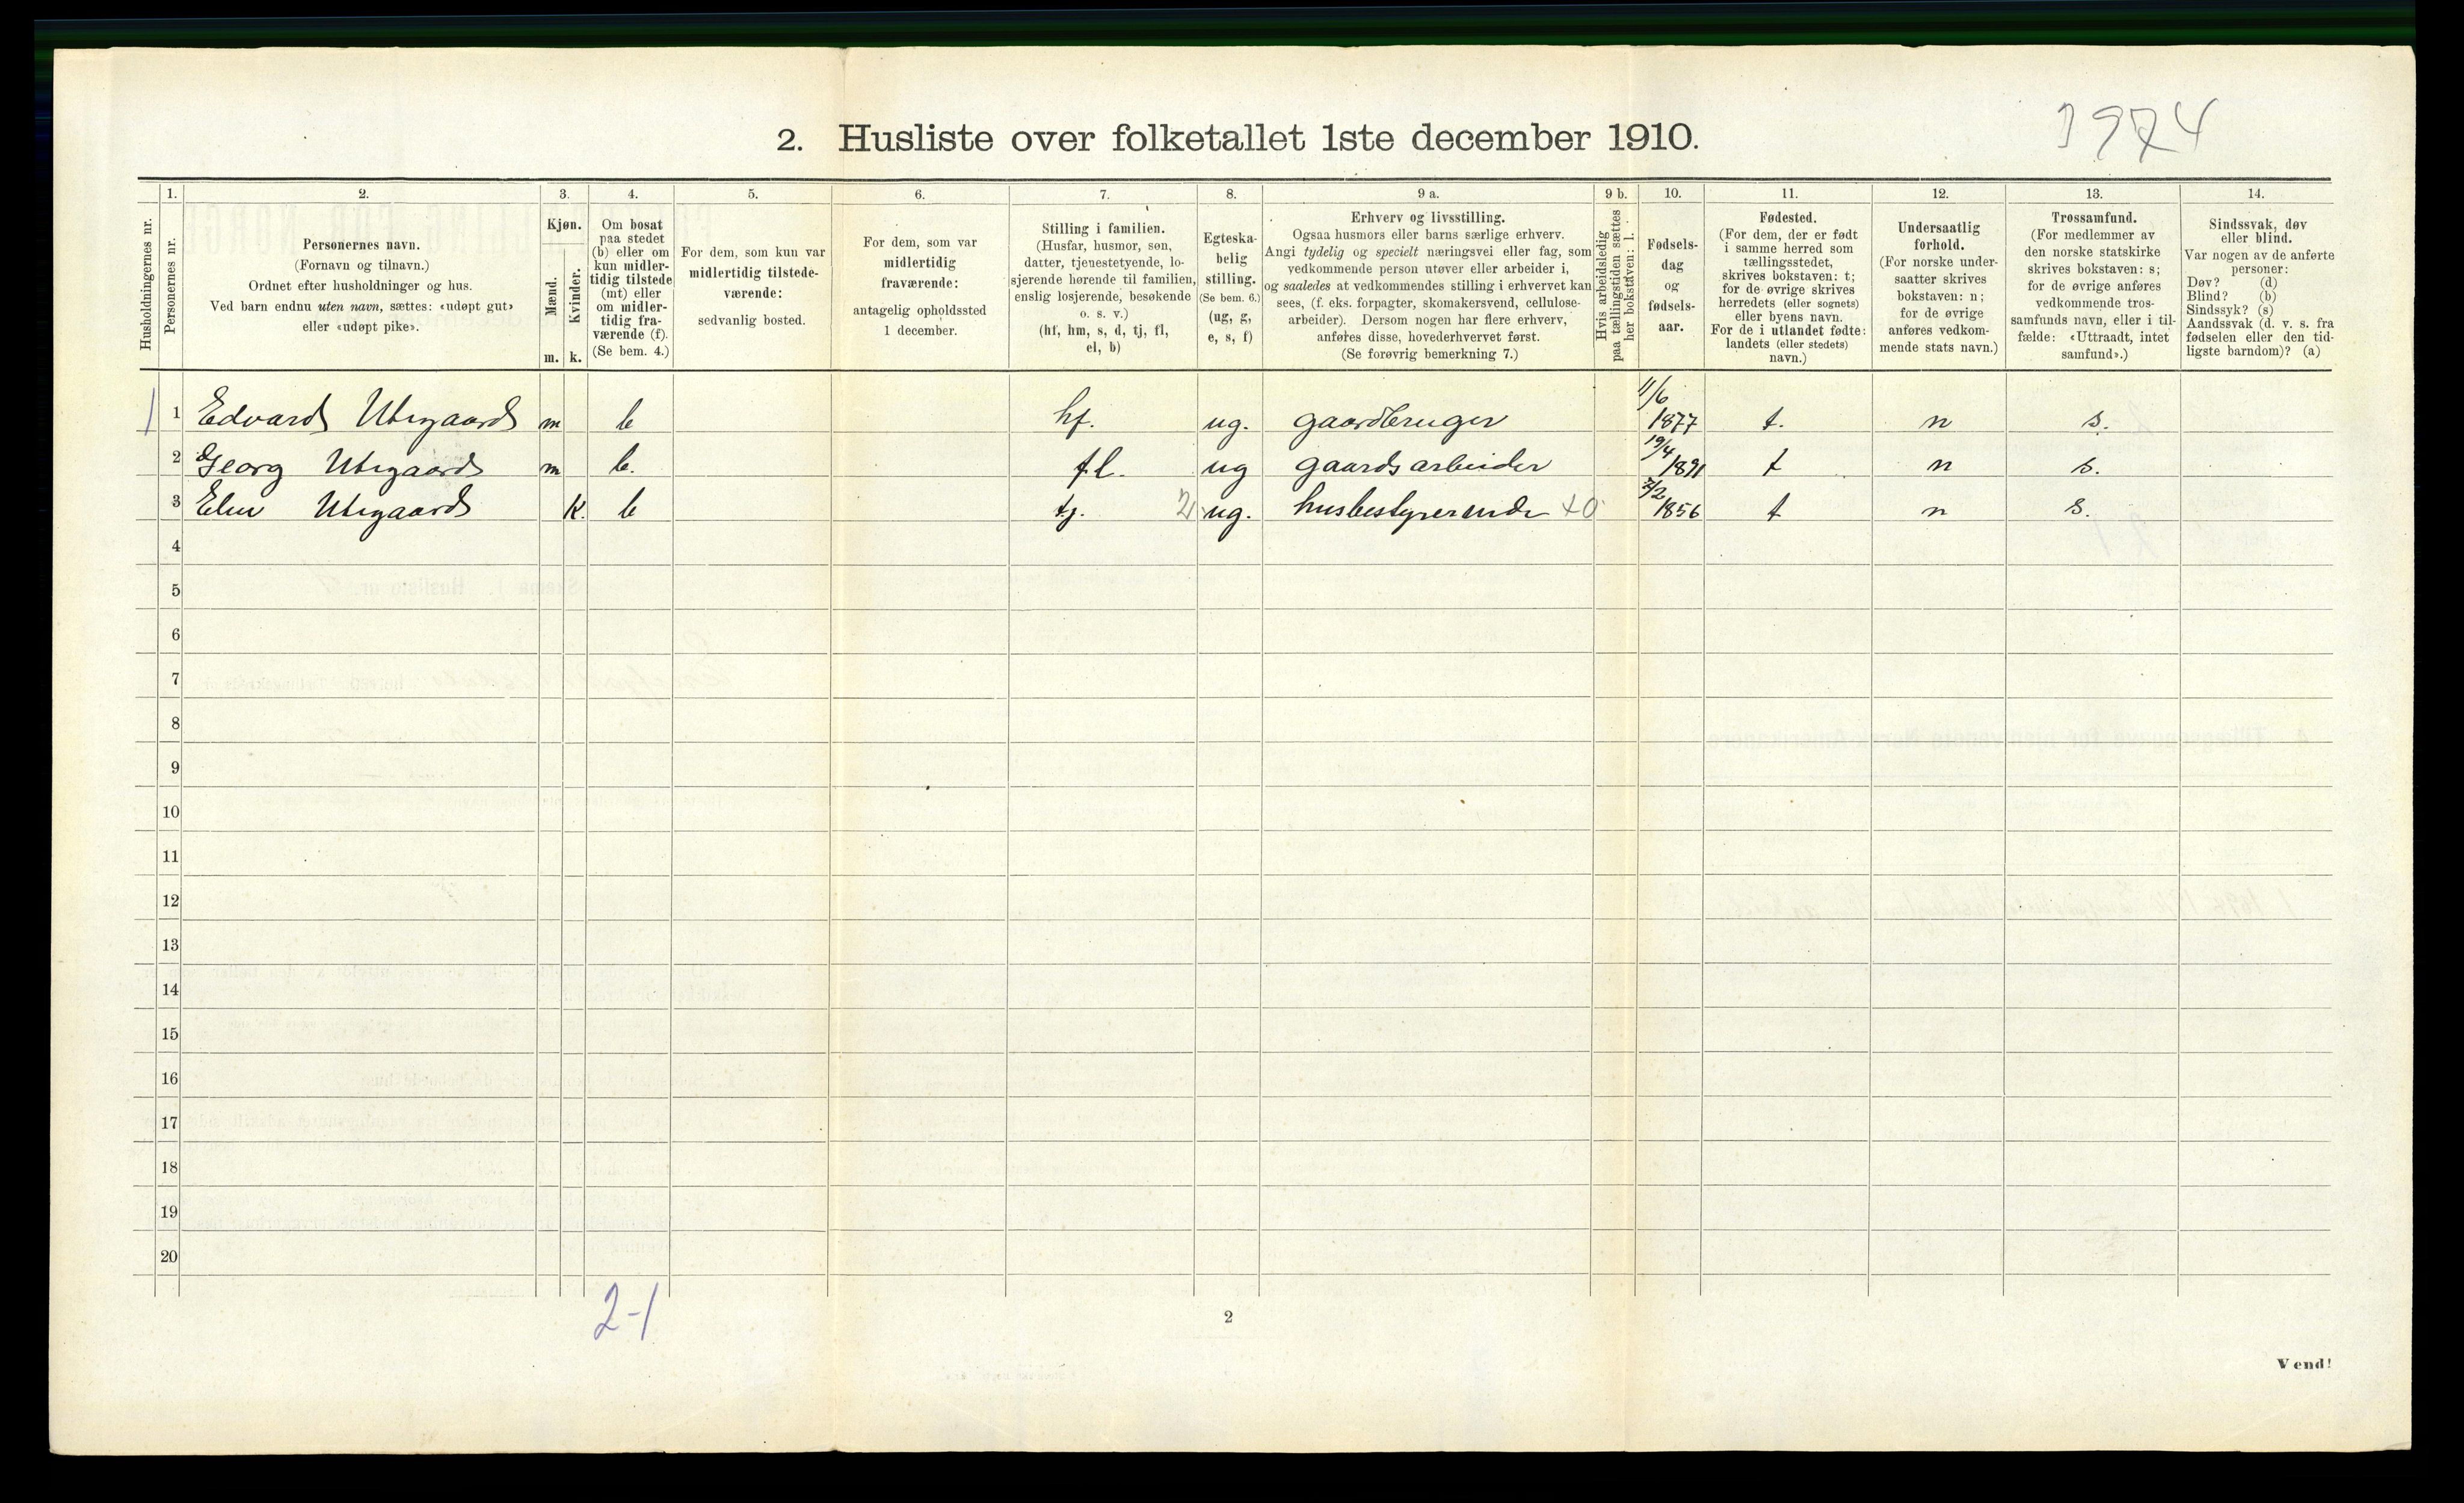 2. Husliste over folketallet 1ste december 1910.
1974
1. 2. 3. 4. 5. 6. 7. 8. 9 a. 9 b. 10. 11. 12. 13. 14.
Husholdningernes nr.
Personernes nr.
Personernes navn.
(Fornavn og tilnavn.)
Ordnet efter husholdninger og hus.
Ved barn endnu uten navn, sættes: «udøpt gut»
eller «udøpt pike».
Kjøn.
Mænd.
Kvinder.
m. k.
Om bosat
paa stedet
(b) eller om
kun midler-
tidig tilstede
(mt) eller
om midler-
tidig fra-
værende (f).
(Se bem. 4.)
For dem, som kun var
midlertidig tilstede-
værende:
sedvanlig bosted.
For dem, som var
midlertidig
fraværende:
antagelig opholdssted
1 december.
Stilling i familien.
(Husfar, husmor, søn,
datter, tjenestetyende, lo-
sjerende hørende til familien,
enslig losjerende, besøkende
o. s. v.)
(hf, hm, s, d, tj, fl,
el, b)
Egteska-
belig
stilling.
(Se bem. 6.)
(ug, g,
e, s, f)
Erhverv og livsstilling.
Ogsaa husmors eller barns særlige erhverv.
Angi tydelig og specielt næringsvei eller fag, som
vedkommende person utøver eller arbeider i,
og saaledes at vedkommendes stilling i erhvervet kan
sees, (f. eks. forpagter, skomakersvend, cellulose-
arbeider). Dersom nogen har flere erhverv,
anføres disse, hovederhvervet først.
(Se forøvrig bemerkning 7.)
Hvis arbeidsledig
paa tællingstiden sættes
her bokstaven: l.
Fødsels-
dag
og
fødsels-
aar.
Fødested.
(For dem, der er født
i samme herred som
tællingsstedet,
skrives bokstaven: t;
for de øvrige skrives
herredets (eller sognets)
eller byens navn.
For de i utlandet fødte:
landets (eller stedets)
navn.)
Undersaatlig
forhold.
(For norske under-
saatter skrives
bokstaven: n;
for de øvrige
anføres vedkom-
mende stats navn.)
Trossamfund.
(For medlemmer av
den norske statskirke
skrives bokstaven: s;
for de øvrige anføres
vedkommende tros-
samfunds navn, eller i til-
fælde: «Uttraadt, intet
samfund».)
Sindssvak, døv
eller blind.
Var nogen av de anførte
personer:
Døv? (d)
Blind? (b)
Sindssyk? (s)
Aandssvak (d. v. s. fra
fødselen eller den tid-
ligste barndom)? (a)
1 1 Edvard Utigaard m b hf. ug. gaardbruger 11/6 1877 t. n s.
2 Georg Utigaard m b. fl. ug gaardsarbeider 19/4 1891 t n s.
3 Utigaard K. b tj. 2 ug. husbestyrerinde +0 7/2 1856 t n s.
4
5
6
7
8
9
10
11
12
13
14
15
16
17
18
19
20
2-1
2
Vend!